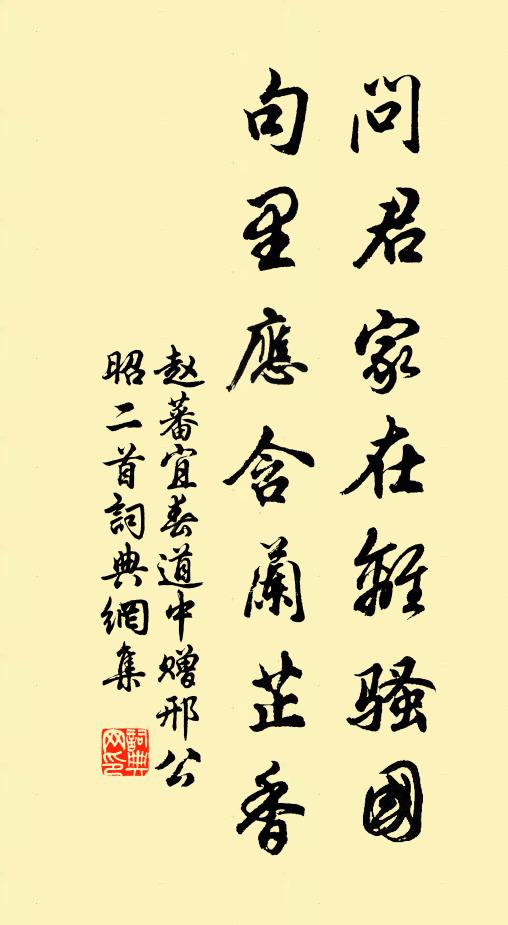 問君家在離騷國
句里應含蘭芷香
赵蕃宜春道中赠邢公
昭二首詞典網集
詞典网印